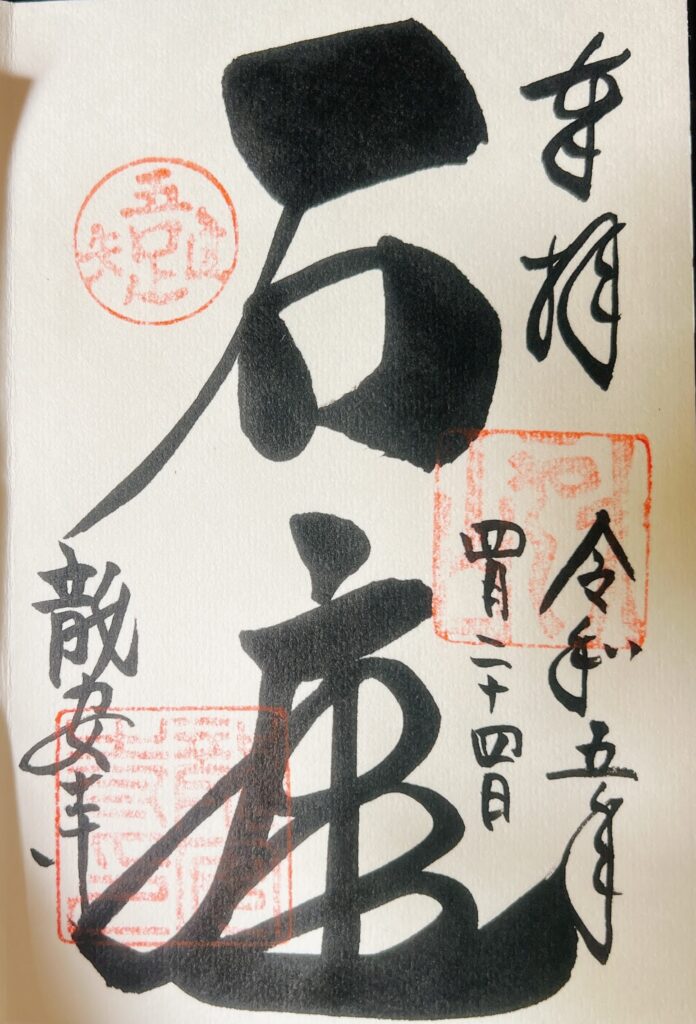 奉拝
令和五年
四月二十四日
石庭
龍安寺
吾唯足知